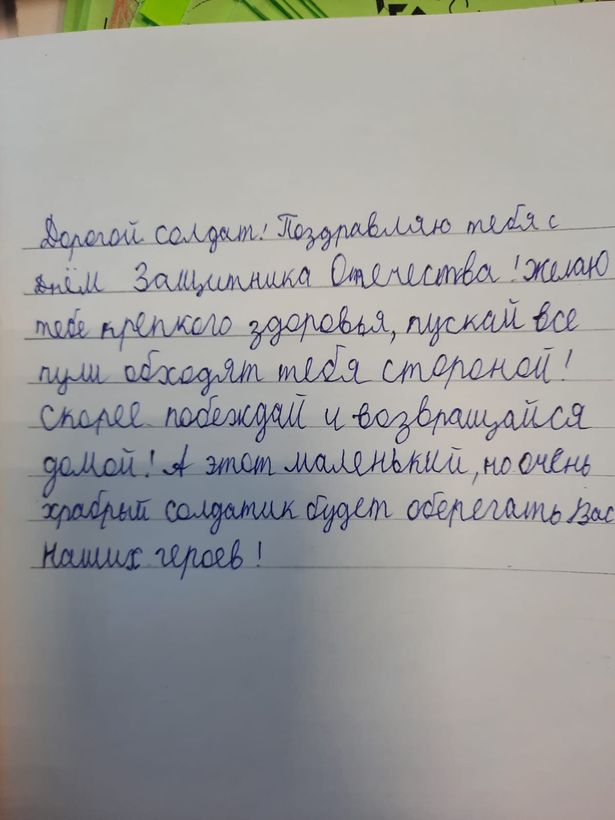 Дорогой солдат! Поздравляю тебя с
днём Защитника Отечества! желаю
тебе крепкого здоровья, пускай все
пули обходят тебя стороной!
скорее побеждай и возвращайся
домой! А этот маленький, но очень
храбрый солдатик будет оберегать Вас
наших героев!